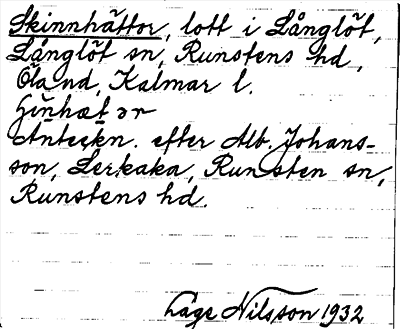 Skinnhättor, lott i Långlöt,
Långlöt sn, Runstens hd,
Öland, Kalmar l.
ʃin̄hæt ər
Anteckn. efter Alb. Johans-
son, Lerkaka, Runsten sn,
Runstens hd.
Lage Nilsson 1932